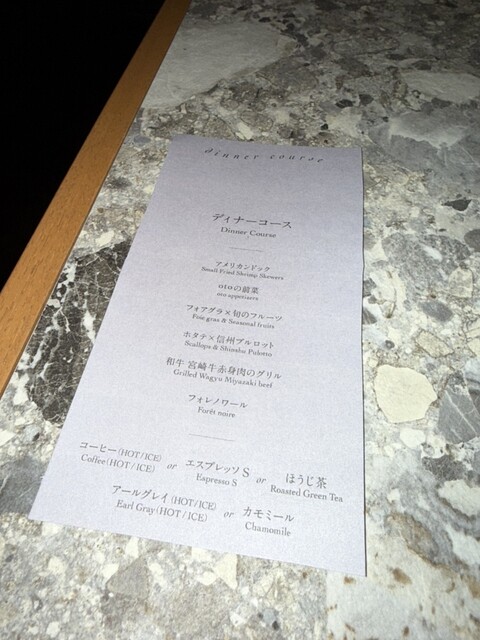 dinner course
ディナーコース
Dinner Course
アメリカンドック
Small Fried Shrimp Skewers
otoの前菜
oto appetizers
フォアグラ×旬のフルーツ
Foie gras & Seasonal fruits
ホタテ×信州プルロット
Scallops & Shinshu Pulotto
和牛 宮崎牛赤身肉のグリル
Grilled Wagyu Miyazaki beef
フォレノワール
Forêt noire
コーヒー(HOT/ICE) or エスプレッソ S or ほうじ茶
Coffee(HOT/ICE) Espresso S Roasted Green Tea
アールグレイ(HOT/ICE) or カモミール
Earl Gray(HOT/ICE) Chamomile